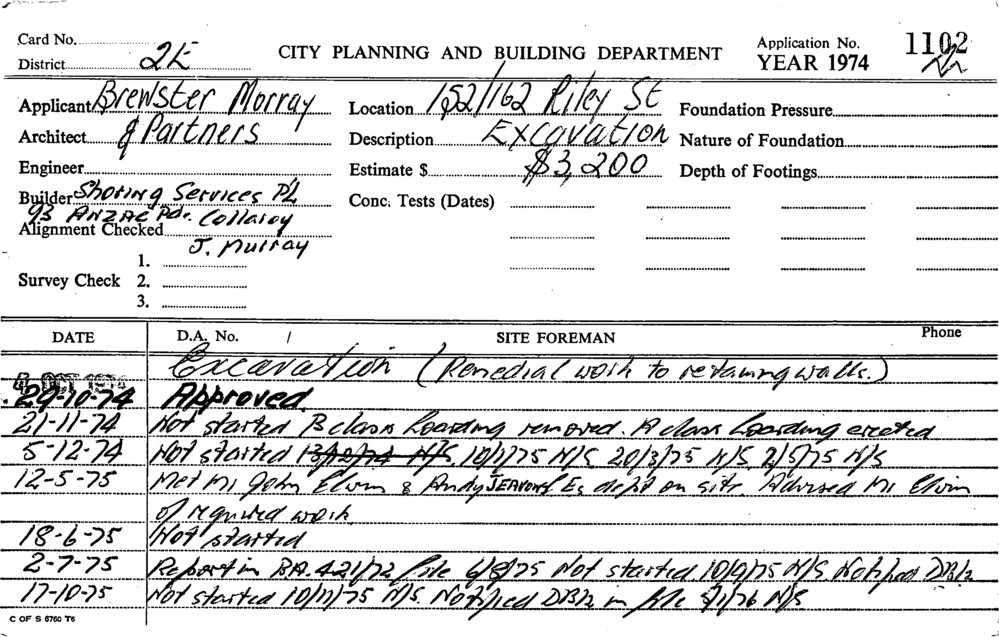 Card No.
District 2E
CITY PLANNING AND BUILDING DEPARTMENT
Application No. 1102
YEAR 1974
Applicant Brewster Murray
Architect & Partners
Engineer
Builder Shoring Services P/L
93 Anzac Pde. Collaroy
Alignment Checked
J. Murray
Survey Check
1.
2.
3.
Location 152/162 Riley St
Description Excavation
Estimate $ $3,200
Conc. Tests (Dates)
Foundation Pressure
Nature of Foundation
Depth of Footings
DATE D.A. No. / SITE FOREMAN Phone
Excavation (Remedial work to retaining walls.)
OCT 1974
29-10-74 Approved.
21-11-74 Not started B class hoarding removed. A class hoarding erected
5-12-74 Not started 13/12/74 N/S. 10/1/75 N/S 20/3/75 N/S 2/5/75 N/S
12-5-75 Met Mr John Elwin & Andy JEAVONS Es dep't on site. Advised Mr Elwin
of required work
18-6-75 Not started
2-7-75 Report in BA. 421/72 file 6/8/75 Not started. 10/9/75 N/S. Notified
17-10-75 Not started 10/11/75 N/S. Notified in file 5/1/76 N/S
C OF S 6760 T6